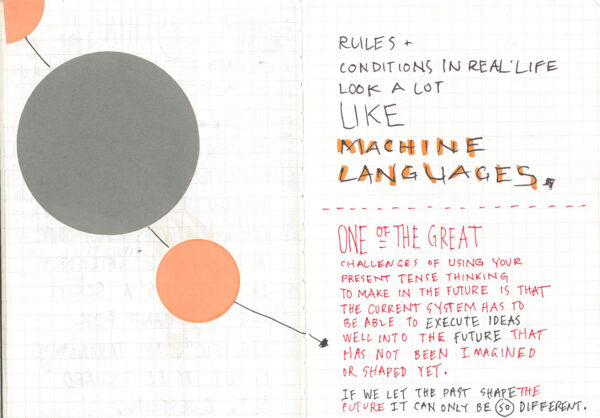 RULES +
CONDITIONS IN REAL LIFE
LOOK A LOT
LIKE
MACHINE
LANGUAGES.
ONE OF THE GREAT
CHALLENGES OF USING YOUR
PRESENT TENSE THINKING
TO MAKE IN THE FUTURE IS THAT
THE CURRENT SYSTEM HAS TO
BE ABLE TO EXECUTE IDEAS
WELL INTO THE FUTURE THAT
HAS NOT BEEN IMAGINED
OR SHAPED YET.
IF WE LET THE PAST SHAPE THE
FUTURE IT CAN ONLY BE SO DIFFERENT.